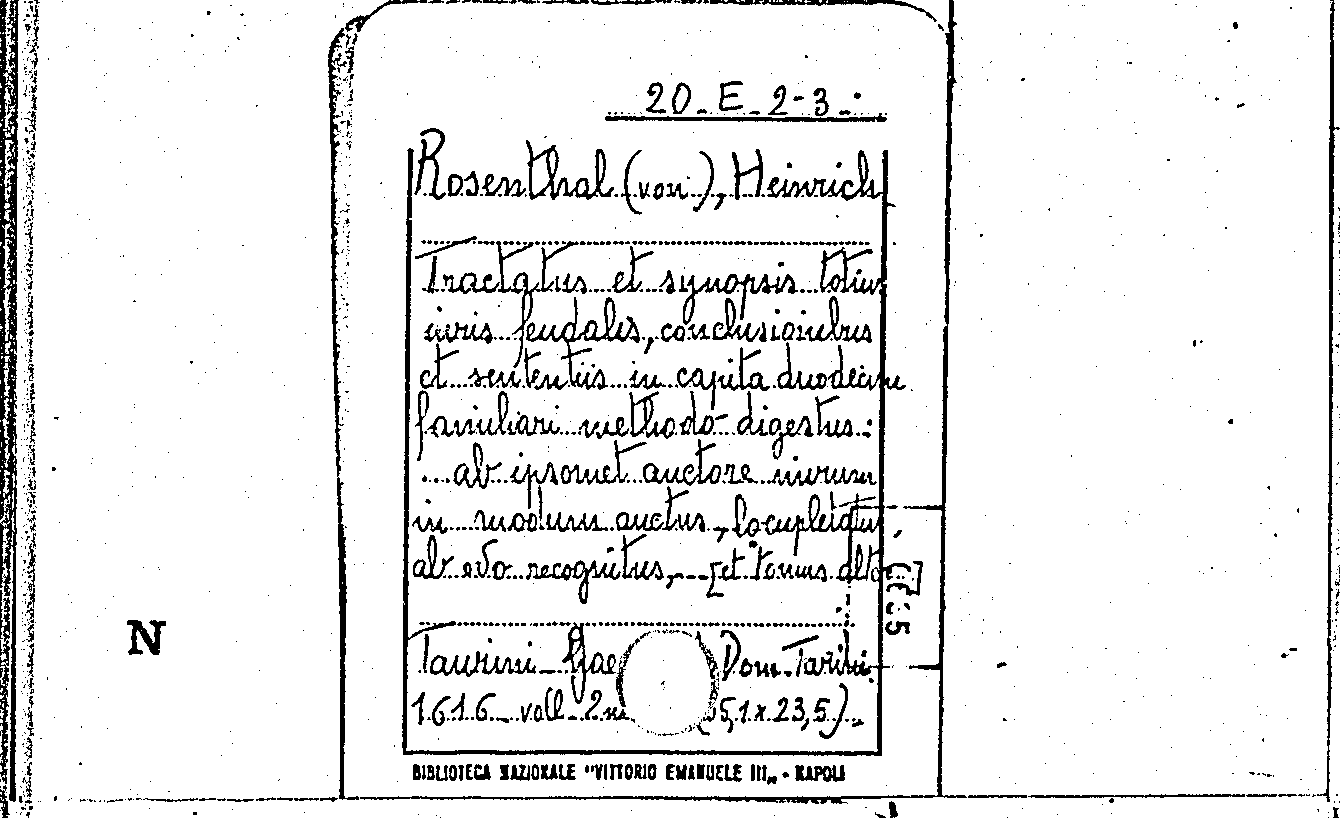 20 - E - 2-3 -
Rosenthal (von), Heinrich
Tractatus et synopsis totius
iuris feudalis, conclusionibus
et sententiis in capita duodecim
familiari methodo digestus:
... ab ipsomet auctore mirum
in modum auctus, locupletatus,
ab ovo recognitus, -- [et tomus alter]
Taurini - Dom. Tarini
1616 - voll. 2 5,1 x 23,5) -
BIBLIOTECA NAZIONALE "VITTORIO EMANUELE III" - NAPOLI
N